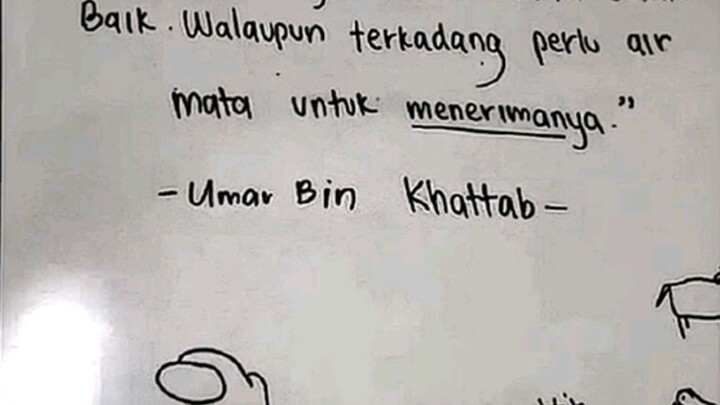 Baik. Walaupun terkadang perlu air
mata untuk menerimanya."
- Umar Bin Khattab -